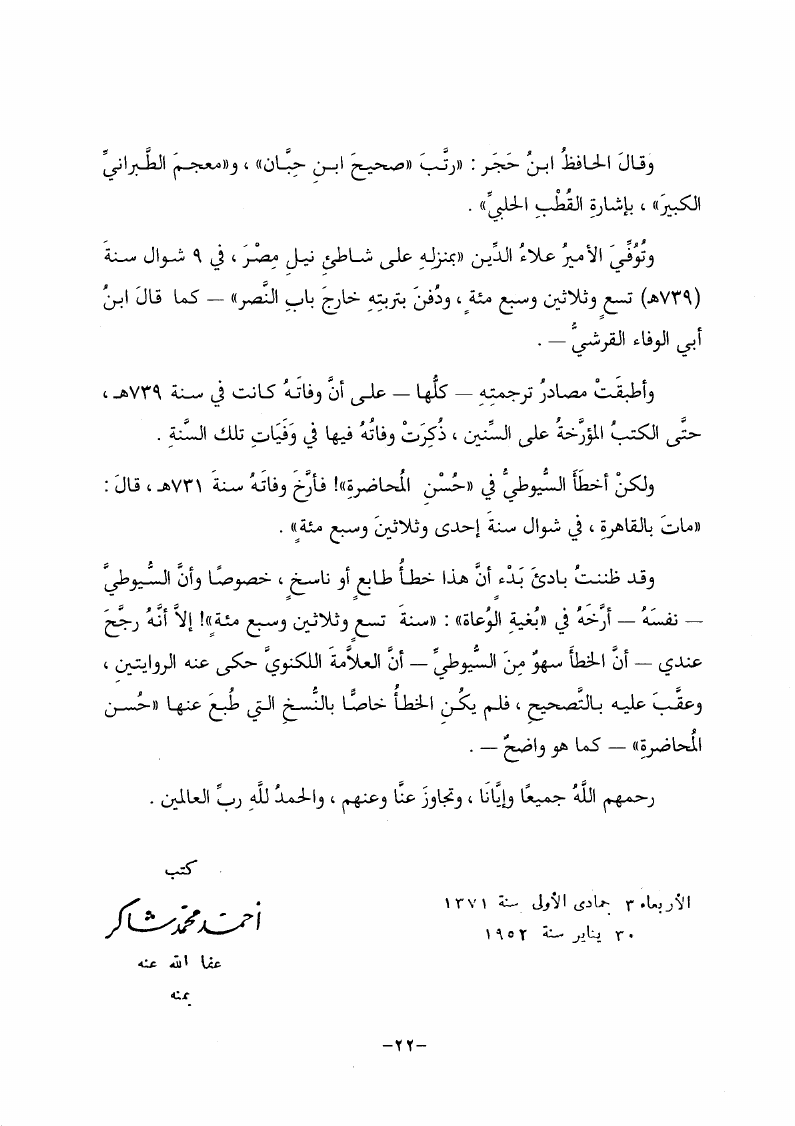 وقالَ الحافظُ ابنُ حَجَر : «رتَّبَ «صحيحَ ابـنِ حِبَّان» ، و«معجـمَ الطَّبرانيِّ
الكبيرَ» ، بإشارةِ القُطْبِ الحلبيِّ» .
وتُوُفِّيَ الأميرُ علاءُ الدِّينِ «بمنزلِهِ على شـاطئِ نيـلِ مِصْرَ ، في ٩ شـوال سـنةَ
(٧٣٩هـ) تسـعٍ وثلاثينَ وسبعِ مئةٍ ، ودُفنَ بتربتِهِ خارجَ بابِ النَّصرِ» – كما قالَ ابنُ
أبي الوفاء القرشيُّ – .
وأطبقَتْ مصادرُ ترجمتِهِ – كلُّها – علـى أنَّ وفاتَـهُ كانت في سـنة ٧٣٩هـ ،
حتَّى الكتبُ المؤرِّخةُ على السِّنين ، ذُكِرَتْ وفاتُهُ فيها في وَفَيَاتِ تلك السَّنةِ .
ولكنْ أخطَأَ السُّيوطيُّ في «حُسْنِ المُحاضرةِ»! فأرَّخَ وفاتَهُ سنةَ ٧٣١هـ ، قالَ :
«ماتَ بالقاهرةِ ، في شوال سنةَ إحدى وثلاثينَ وسبعِ مئةٍ» .
وقد ظننـتُ بادئَ بَدْءٍ أنَّ هذا خطـأُ طابعٍ أو ناسـخٍ ، خصوصًـا وأنَّ السُّـيوطيَّ
– نفسَـهُ – أرَّخَهُ في «بُغيةِ الوُعاة» : «سنةَ تسـعٍ وثلاثينَ وسبعِ مئةٍ»! إلاَّ أنَّهُ رجَّحَ
عندي – أنَّ الخطأَ سهوٌ مِنَ السُّيوطيِّ – أنَّ العلاَّمةَ اللكنويَّ حكى عنه الروايتينِ ،
وعقَّـبَ عليه بـالتَّصحيحِ ، فلم يكُـنِ الخطأُ خاصًّا بالنُّسـخِ الـتي طُبعَ عنهـا «حُسـن
المُحاضرةِ» – كما هو واضحٌ – .
رحمهم اللَّهُ جميعًا وإيَّانَا ، وتجاوزَ عنَّا وعنهم ، والحمدُ للَّهِ ربِّ العالمين .
كتب
الأربعاء ٣ جمادى الأولى سنة ١٣٧١
أحمد محمد شاكر
٣٠ يناير سنة ١٩٥٢
عفا الله عنه
بمنه
–٢٢–